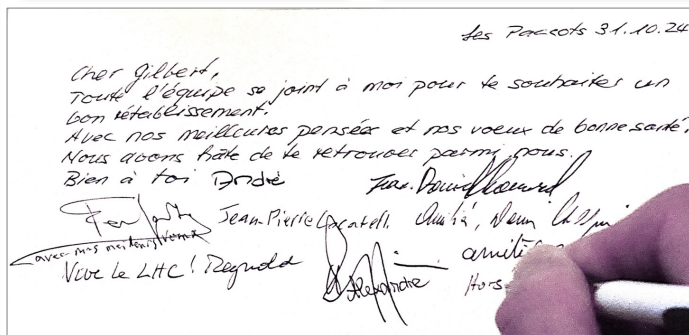 Les Paccots 31.10.24
Cher Gilbert,
Toute l'équipe se joint à moi pour te souhaiter un
bon rétablissement.
Avec nos meilleures pensées et nos voeux de bonne santé.
Nous avons hâte de te retrouver parmi nous.
Bien à toi André
Jean-Pierre Amitié,
avec mes meilleurs vœux
Vive le LHC! Reynold
Alexandre
Hors